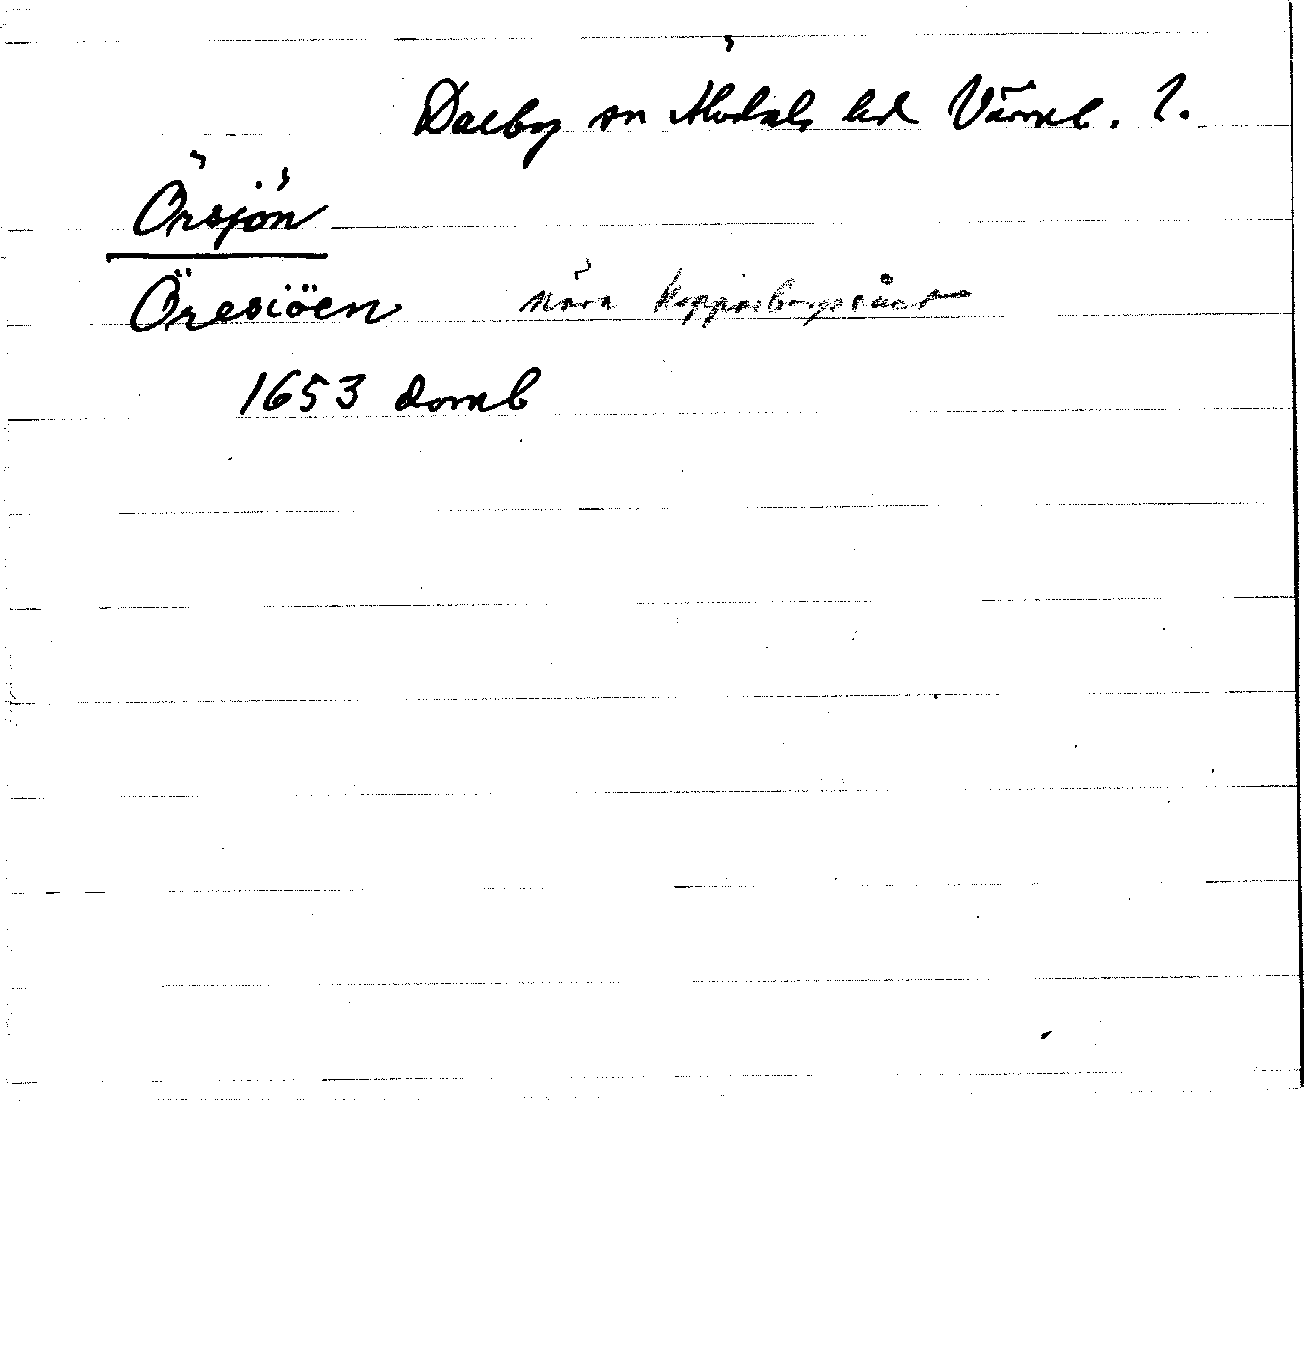 Dalby sn Älvdals hd Värml. l.
Örsjön
Öresiöen nära Kopparbergs länet
1653 domb